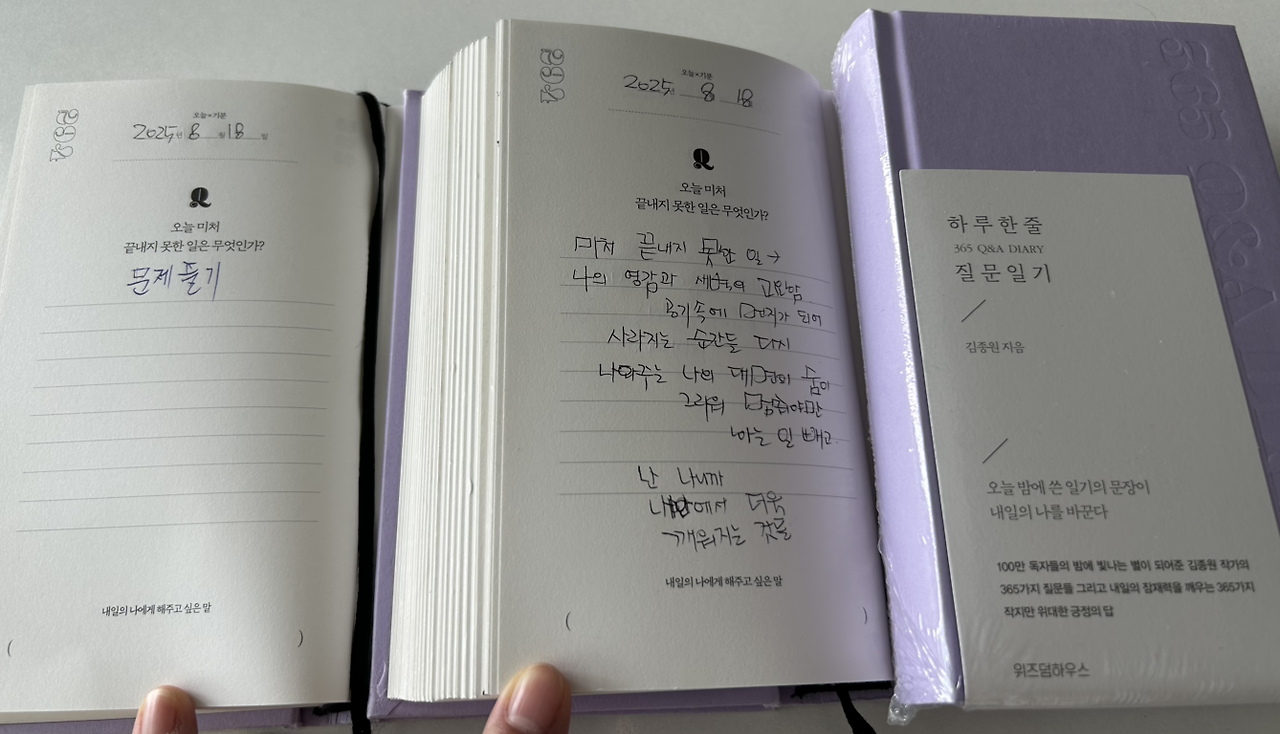 292
오늘×기분
2025년 8월 18일
Q
오늘 미처
끝내지 못한 일은 무엇인가?
문제 풀기
내일의 나에게 해주고 싶은 말
( )
292
오늘×기분
2025년 8 18
Q
오늘 미처
끝내지 못한 일은 무엇인가?
미처 끝내지 못한 일→
나의 영감과 새벽의 고요함
공기속에 먼지가 되어
사라지는 순간들 다시
나와주는 나의 대면이 숨이
그리워
아는 일 빼고
난 나니까
에서 더욱
깨워지는 것들
내일의 나에게 해주고 싶은 말
( )
365 Q&A
하루 한 줄
365 Q&A DIARY
질문일기
김종원 지음
오늘 밤에 쓴 일기의 문장이
내일의 나를 바꾼다
100만 독자들의 밤에 빛나는 별이 되어준 김종원 작가의
365가지 질문들 그리고 내일의 잠재력을 깨우는 365가지
작지만 위대한 긍정의 답
위즈덤하우스